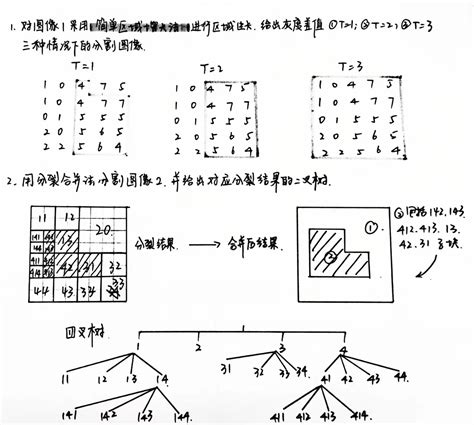 1. 对图像1采用简单区域增长法进行区域生长. 给出灰度差值 ①T=1; ②T=2; ③T=3
三种情况下的分割图像.
T=1 T=2 T=3
1 0 4 7 5 1 0 4 7 5 1 0 4 7 5
1 0 4 7 7 1 0 4 7 7 1 0 4 7 7
0 1 5 5 5 0 1 5 5 5 0 1 5 5 5
2 0 5 6 5 2 0 5 6 5 2 0 5 6 5
2 2 5 6 4 2 2 5 6 4 2 2 5 6 4
2. 用分裂合并法分割图像2. 并给出对应分裂结果的二叉树.
11 12 20
141 13
411
42 31 32
44 43 34 33
分裂结果 → 合并后结果.
① ②
②包括 142, 143
412, 413, 13.
42, 31 多块.
四叉树
1 2 3 4
11 12 13 14 31 32 33 34. 41 42 43 44.
141 142 143 144 411 412 413 414.